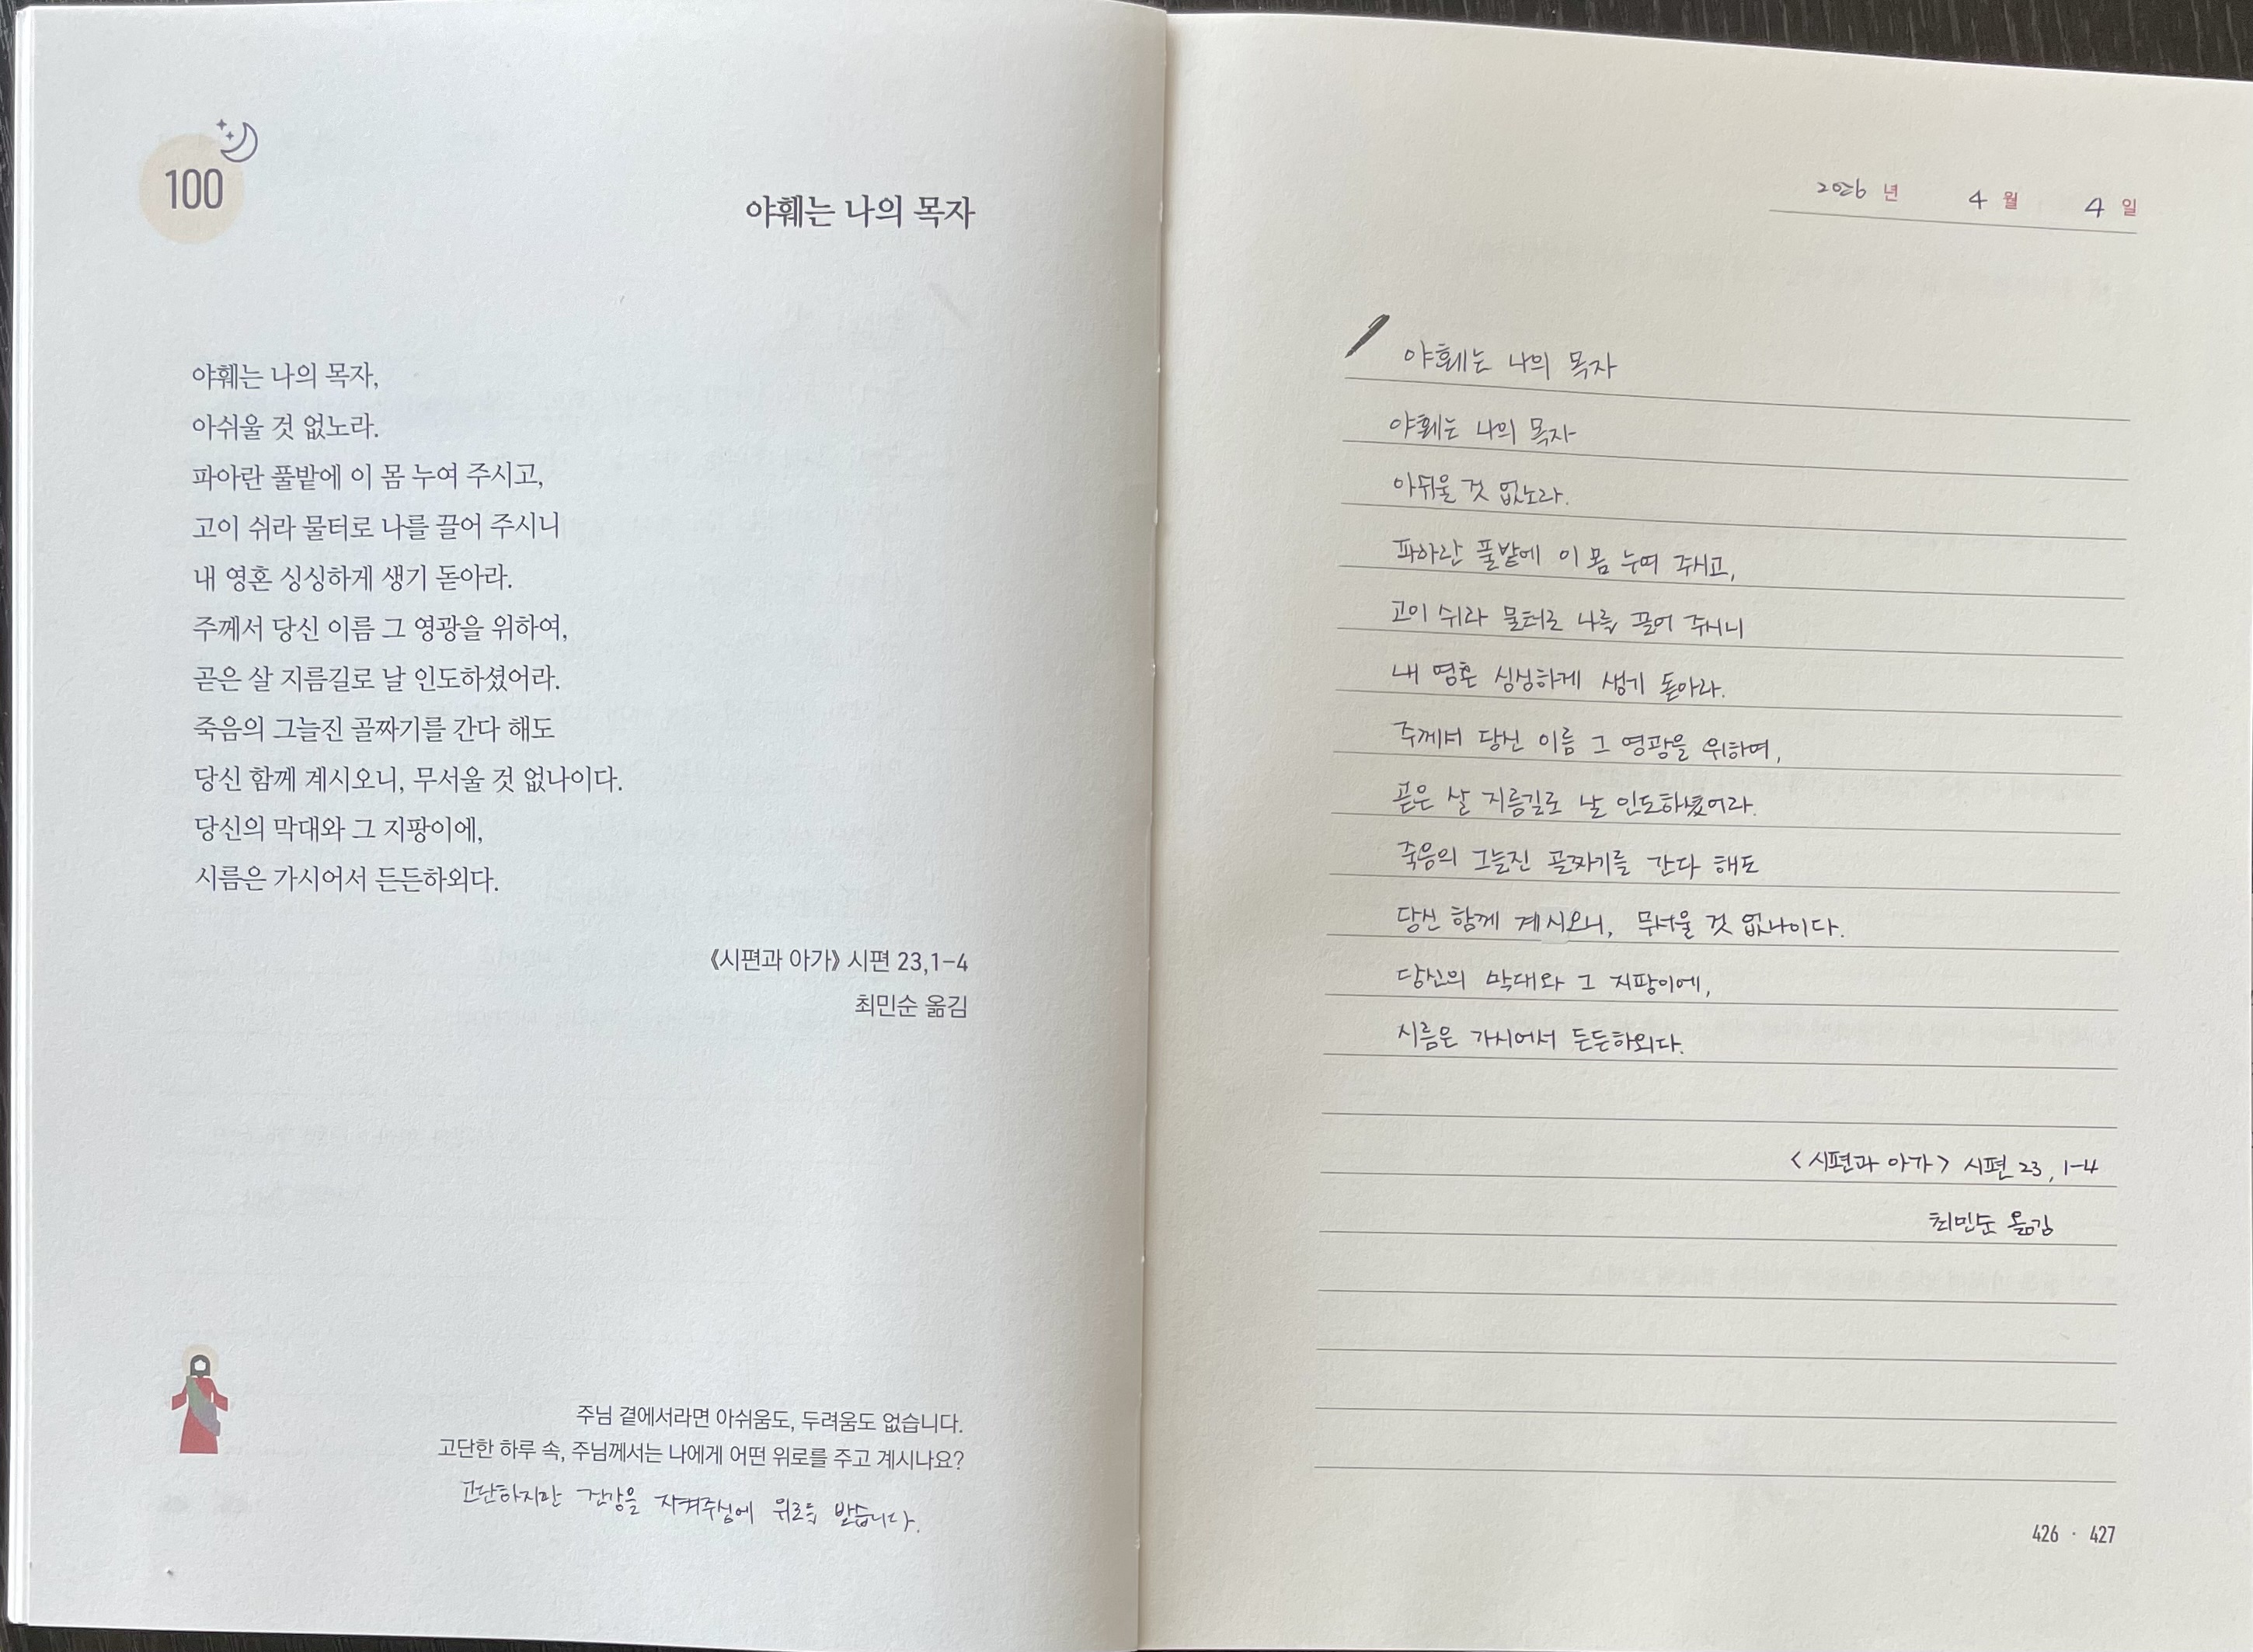 100
야훼는 나의 목자
야훼는 나의 목자,
아쉬울 것 없노라.
파아란 풀밭에 이 몸 누여 주시고,
고이 쉬라 물터로 나를 끌어 주시니
내 영혼 싱싱하게 생기 돋아라.
주께서 당신 이름 그 영광을 위하여,
곧은 살 지름길로 날 인도하셨어라.
죽음의 그늘진 골짜기를 간다 해도
당신 함께 계시오니, 무서울 것 없나이다.
당신의 막대와 그 지팡이에,
시름은 가시어서 든든하외다.
《시편과 아가》 시편 23,1–4
최민순 옮김
주님 곁에서라면 아쉬움도, 두려움도 없습니다.
고단한 하루 속, 주님께서는 나에게 어떤 위로를 주고 계시나요?
고단하지만 건강을 지켜주심에 위로를 받습니다.
2026 년 4 월 4 일
야훼는 나의 목자
야훼는 나의 목자
아쉬울 것 없노라.
파아란 풀밭에 이 몸 누여 주시고,
고이 쉬라 물터로 나를 끌어 주시니
내 영혼 싱싱하게 생기 돋아라.
주께서 당신 이름 그 영광을 위하여,
곧은 살 지름길로 날 인도하셨어라.
죽음의 그늘진 골짜기를 간다 해도
당신 함께 계시오니, 무서울 것 없나이다.
당신의 막대와 그 지팡이에,
시름은 가시어서 든든하외다.
<시편과 아가> 시편 23, 1-4
최민순 옮김
426 · 427